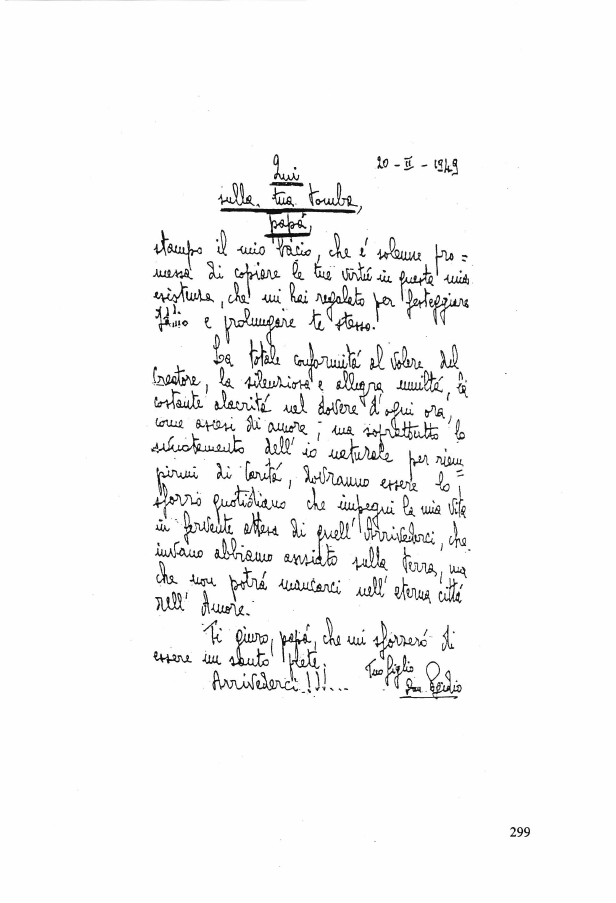 20 - II - 1949
Qui
sulla tua tomba,
papá,
stampo il mio bacio, che é solenne pro =
messa di copiare le tue virtú in questa mia
esistenza, che mi hai regalato per festeggiare
e prolungare te stesso.
La totale conformitá al Volere del
Creatore, la silenziosa e allegra umiltá, la
costante alacritá nel dovere d'ogni ora,
come ascesi di amore; ma soprattutto lo
svuotamento dell'io naturale per riem =
pirmi di Caritá, dovranno essere lo
sforzo quotidiano che impegni la mia vita
in fervente attesa di quell'Arrivederci, che
invano abbiamo ansiato sulla terra, ma
che non potrá mancarci nell'eterna cittá
dell'Amore.
Ti giuro, papá, che mi sforzeró di
essere un santo prete.
Arrivederci!!!...
Tuo figlio
Don Egidio
299